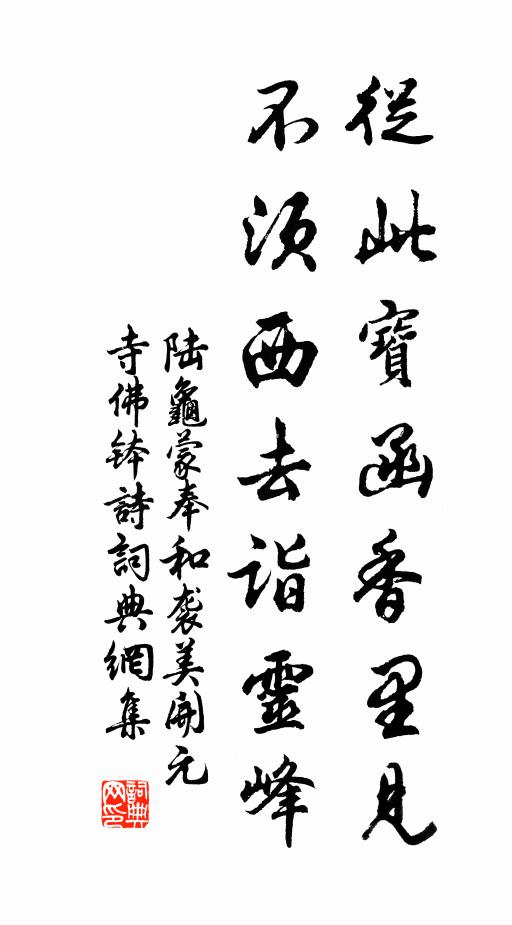 從此寶函香里見
不須西去詣靈峰
陆龜蒙奉和袭美開元
寺佛钵詩詞典網集
詞典网印